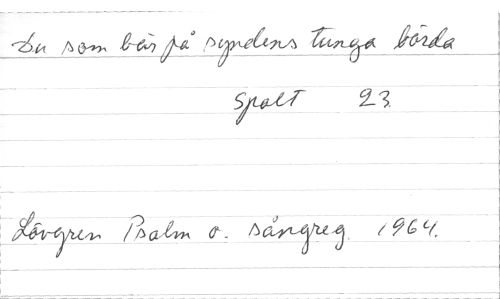 Du som bär på syndens tunga börda
Spalt 23
Lövgren Psalm o. sångreg. 1964.